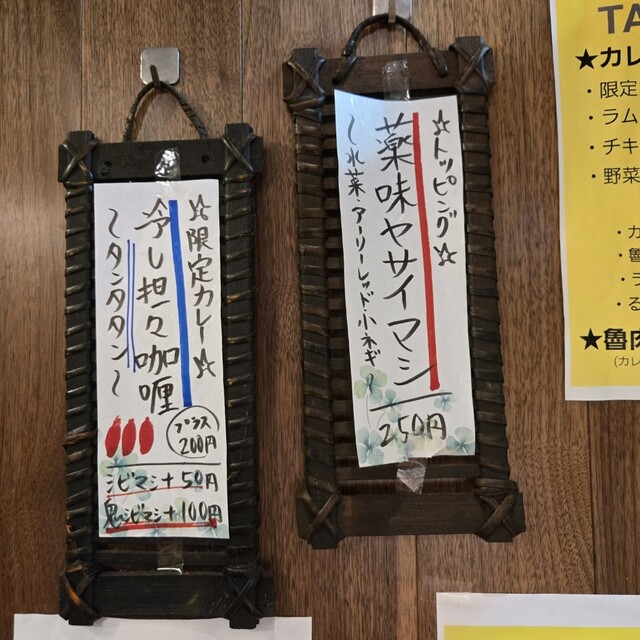 ☆限定カレー☆
冷し担々咖喱
～タンタタン～
プラス
200円
シビマシ+50円
鬼シビマシ+100円
☆トッピング☆
薬味ヤサイマシ
～水菜・アーリーレッド・小ネギ～
250円
TA
★カレ
・限定
・ラム
・チキ
・野菜
・カ
・魯
・ラ
・る
★魯肉
(カレ